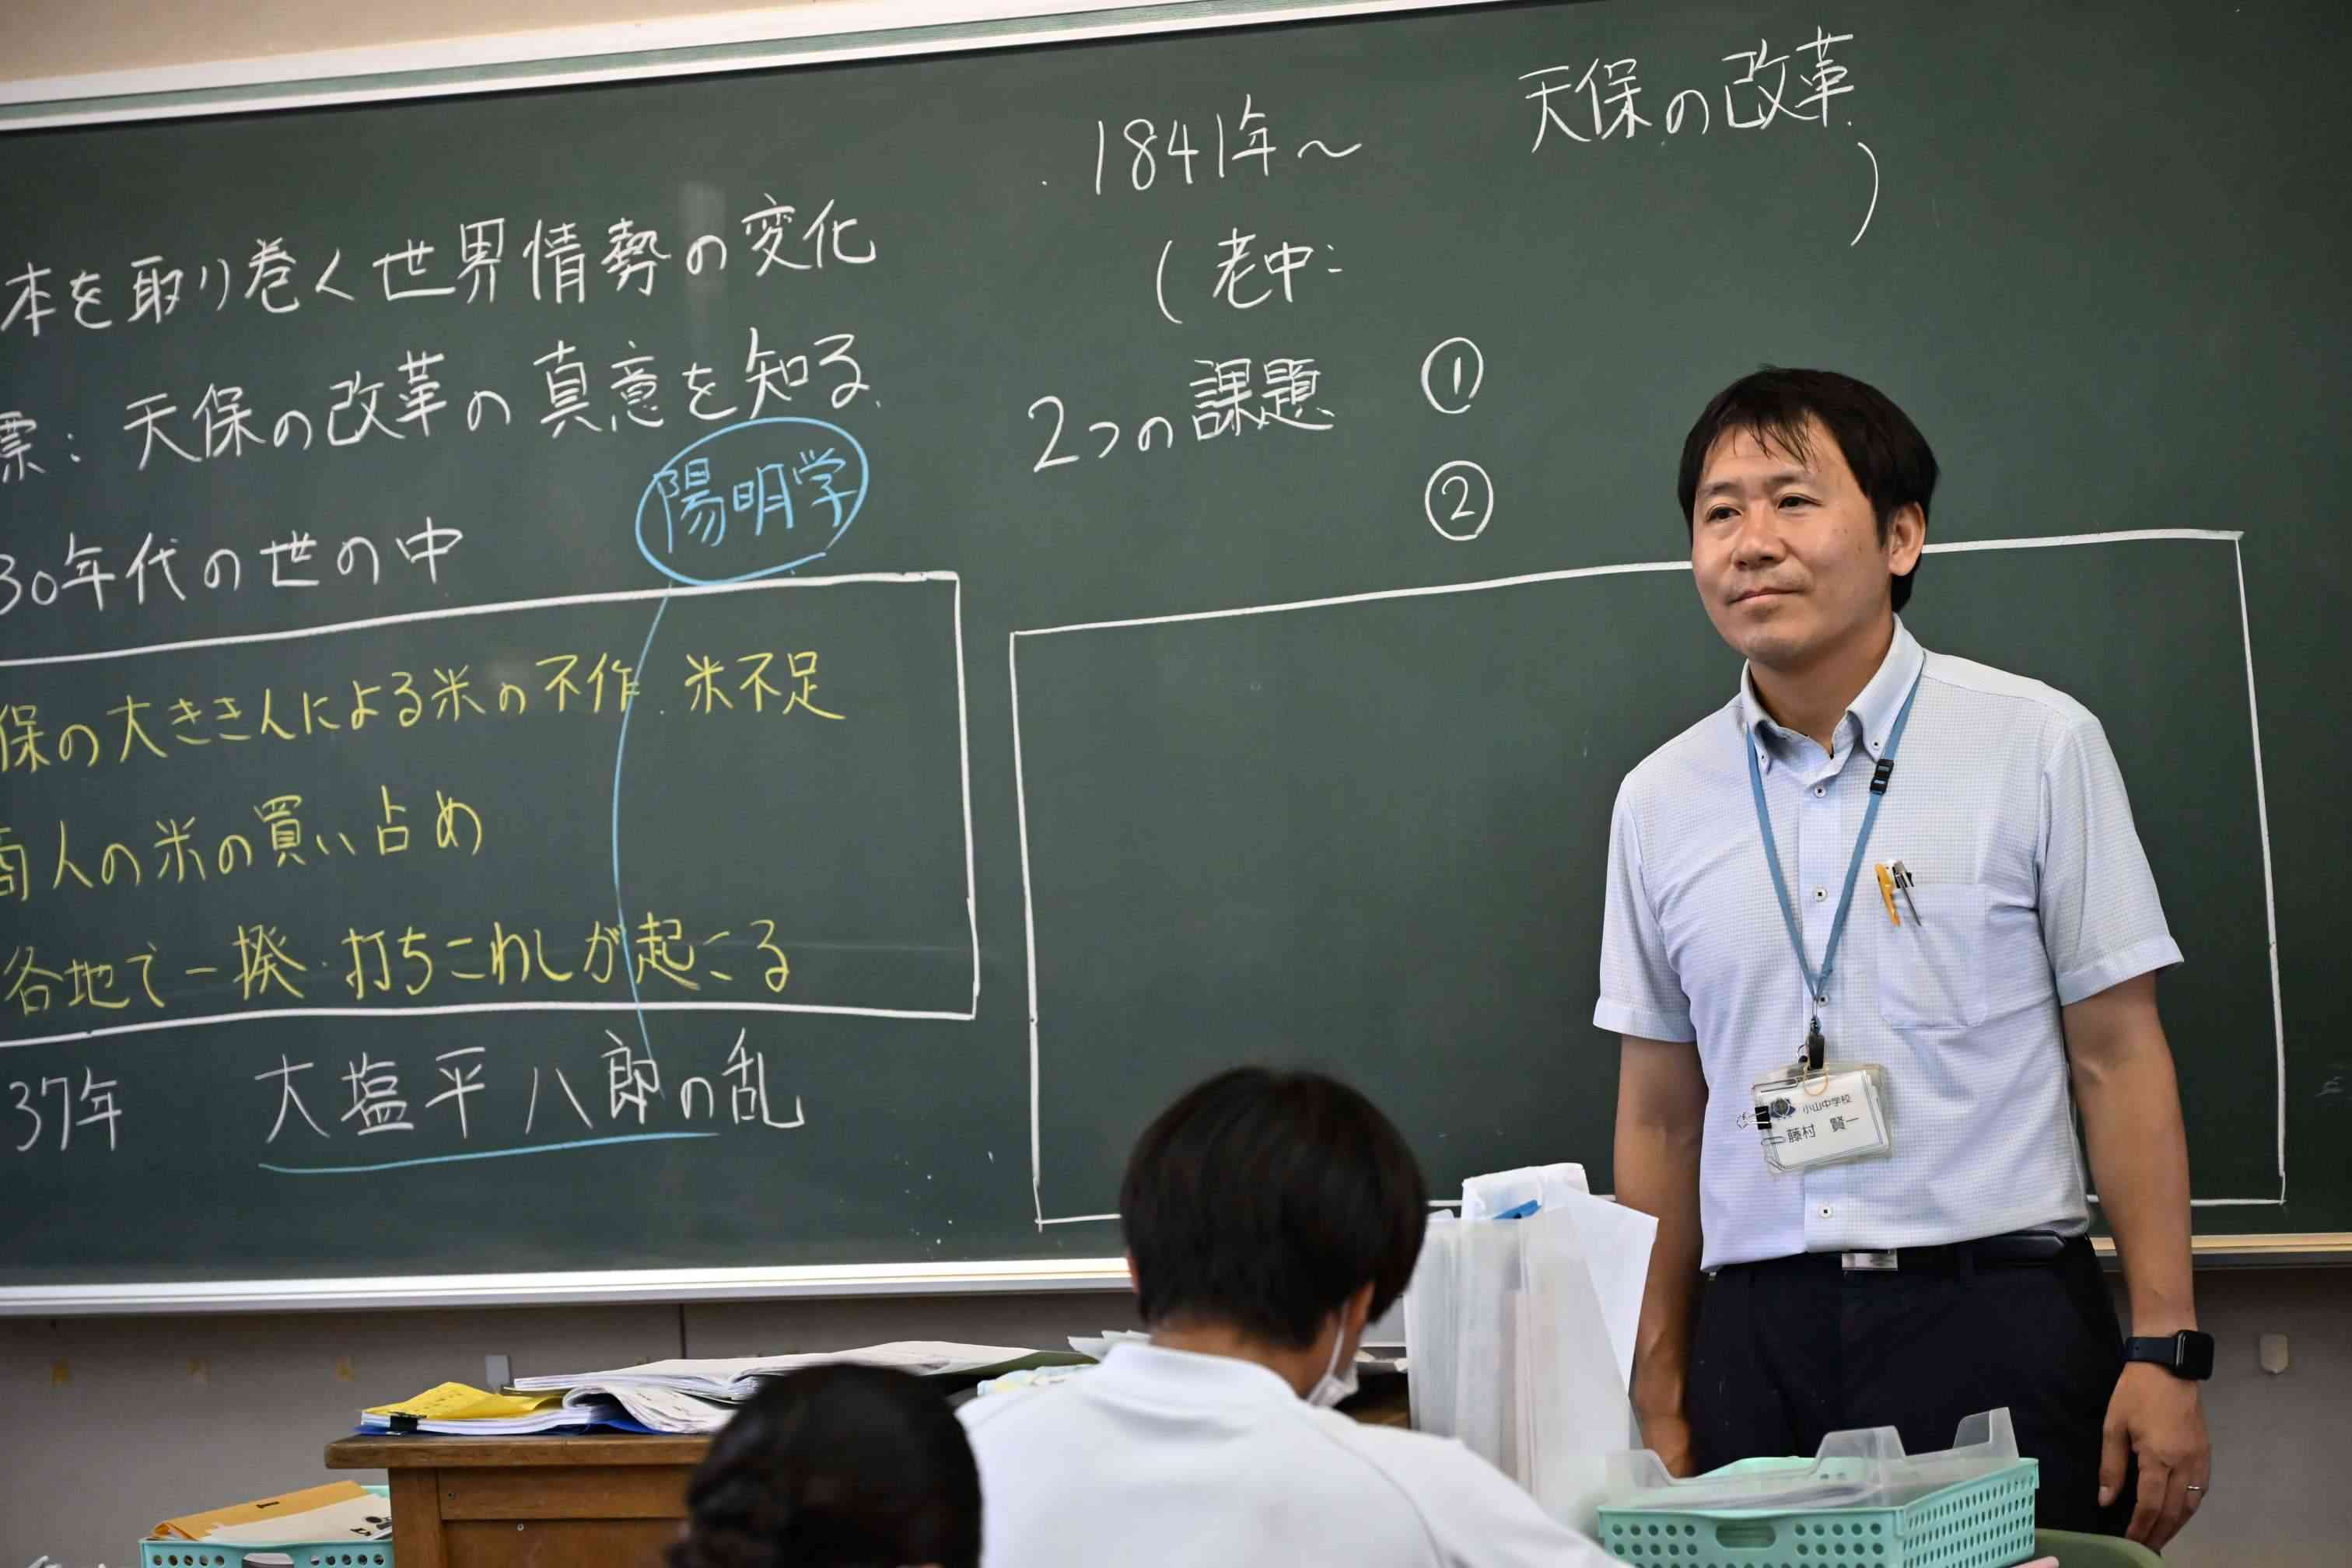 本を取り巻く世界情勢の変化
標：天保の改革の真意を知る
陽明学
30年代の世の中
保の大ききんによる米の不作 米不足
商人の米の買い占め
各地で一揆・打ちこわしが起こる
37年 大塩平八郎の乱
1841年～ 天保の改革
(老中: )
2つの課題 ①
②
小山中学校
藤村 賢一